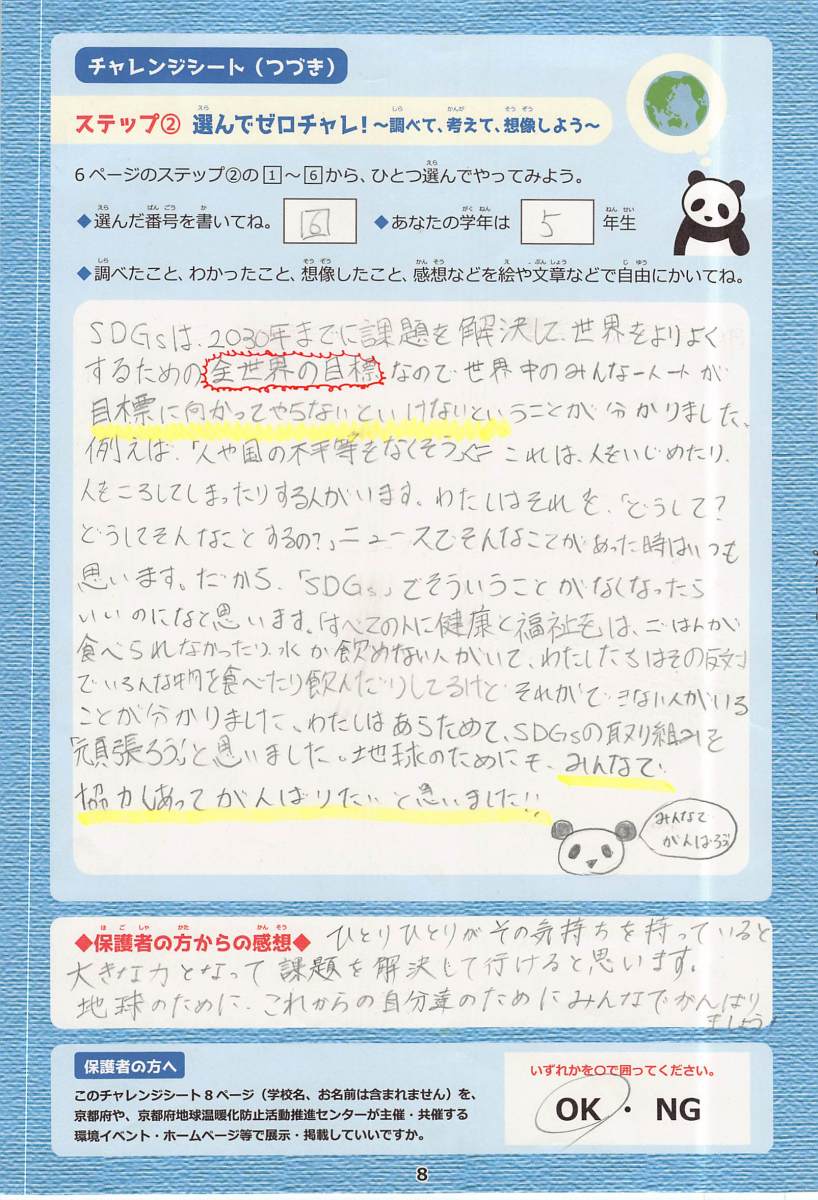 チャレンジシート（つづき）
ステップ② 選んでゼロチャレ！～調べて、考えて、想像しよう～
6ページのステップ②の1～6から、ひとつ選んでやってみよう。
◆選んだ番号を書いてね。 6 ◆あなたの学年は 5 年生
◆調べたこと、わかったこと、想像したこと、感想などを絵や文章などで自由にかいてね。
SDGsは、2030年までに課題を解決して、世界をよりよく
するための全世界の目標なので世界中のみんな一人一人が
目標に向かってやらないといけないということが分かりました。
例えば、「人や国の不平等をなくそう」⇐これは、人をいじめたり、
人をころしてしまったりする人がいます。わたしはそれを、「どうして？
どうしてそんなことするの？」ニュースでそんなことがあった時はいつも
思います。だから、「SDGs」でそういうことがなくなったら
いいのになと思います。「すべての人に健康と福祉を」は、ごはんが
食べられなかったり、水が飲めない人がいて、わたしたちはその反対
でいろんな物を食べたり飲んだりしてるけど それができない人がいる
ことが分かりました。わたしはあらためて、SDGsの取り組みを
「頑張ろう！」と思いました。地球のためにも、みんなで
協力しあってがんばりたいと思いました!!
みんなで
がんばろう
◆保護者の方からの感想◆ ひとりひとりがその気持ちを持っていると
大きな力となって課題を解決して行けると思います。
地球のために、これからの自分達のためにみんなでがんばり
ましょう
保護者の方へ
このチャレンジシート8ページ（学校名、お名前は含まれません）を、
京都府や、京都府地球温暖化防止活動推進センターが主催・共催する
環境イベント・ホームページ等で展示・掲載していいですか。
いずれかを○で囲ってください。
OK ・ NG
8